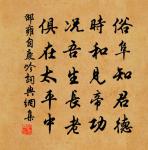 俗阜知君德
時和見帝功
況吾生長老
俱在太平中
邵雍自處吟詞典網集